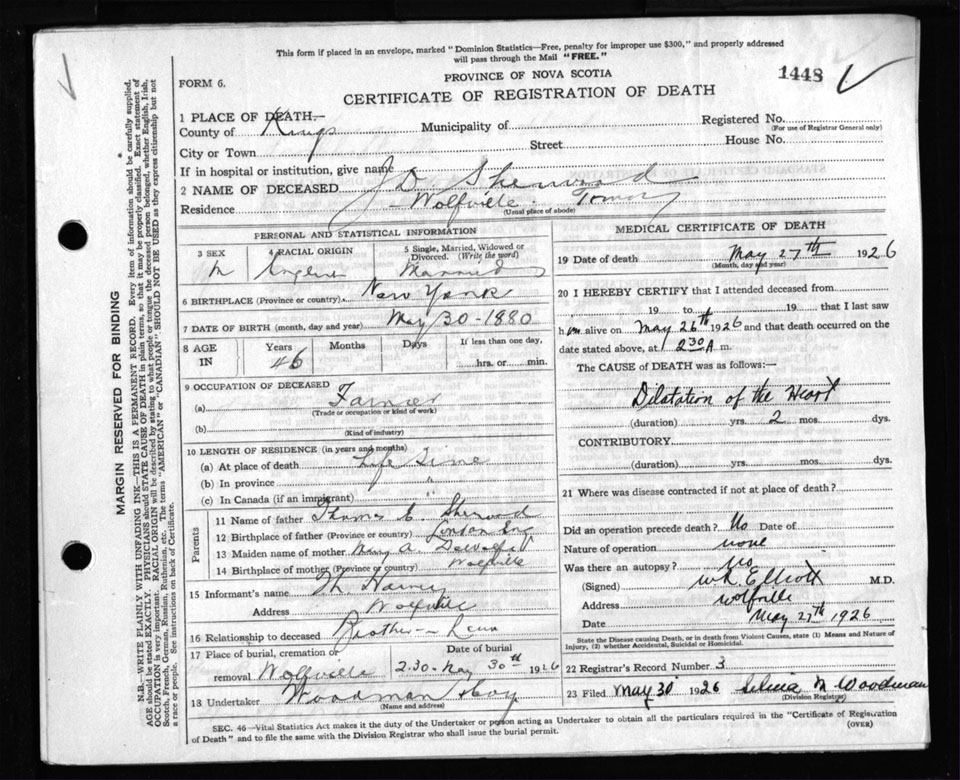 This form if placed in an envelope, marked "Dominion Statistics—Free, penalty for improper use $300," and properly addressed
will pass through the Mail "FREE."
PROVINCE OF NOVA SCOTIA
1448
FORM 6.
CERTIFICATE OF REGISTRATION OF DEATH
1 PLACE OF DEATH—
Registered No.
(For use of Registrar General only)
County of Kings Municipality of
City or Town Street House No.
If in hospital or institution, give name
2 NAME OF DECEASED J D Sherwood
Residence Wolfville
(Usual place of abode)
PERSONAL AND STATISTICAL INFORMATION
3 SEX 4 RACIAL ORIGIN 5 Single, Married, Widowed or Divorced. (Write the word)
M English Married
6 BIRTHPLACE (Province or country) New York
7 DATE OF BIRTH (month, day and year) May 30-1880
8 AGE IN Years Months Days If less than one day,
46 hrs. or min.
9 OCCUPATION OF DECEASED
(a) Farmer
(Trade or occupation or kind of work)
(b)
(Kind of industry)
10 LENGTH OF RESIDENCE (in years and months)
(a) At place of death Life Time
(b) In province "
(c) In Canada (if an immigrant) "
Parents
11 Name of father Thomas E Sherwood
12 Birthplace of father (Province or country) London Eng
13 Maiden name of mother Mary A. DeWolfe
14 Birthplace of mother (Province or country) Wolfville
15 Informant's name Harvey
Address Wolfville
16 Relationship to deceased Brother in Law
17 Place of burial, cremation or removal Wolfville
Date of burial
2.30 May 30th 1926
18 Undertaker Woodman & Coy
(Name and address)
MEDICAL CERTIFICATE OF DEATH
19 Date of death May 27th 1926
(Month, day and year)
20 I HEREBY CERTIFY that I attended deceased from
19 to 19 that I last saw
him alive on May 26th 1926 and that death occurred on
date stated above, at 2 30 A m.
The CAUSE of DEATH was as follows:—
Dilatation of the Heart
(duration) yrs. 2 mos. dys.
CONTRIBUTORY
(duration) yrs. mos. dys.
21 Where was disease contracted if not at place of death?
Did an operation precede death? No Date of
Nature of operation none
Was there an autopsy? No
(Signed) Elliott M.D.
Address Wolfville
Date May 27th 1926
State the Disease causing Death, or in death from Violent Causes, state (1) Means and Nature of
Injury, (2) whether Accidental, Suicidal or Homicidal.
22 Registrar's Record Number 3
23 Filed May 30 1926 Selina M Woodman
(Division Registrar)
SEC. 46—Vital Statistics Act makes it the duty of the Undertaker or person acting as Undertaker to obtain all the particulars required in the "Certificate of Registration
of Death" and to file the same with the Division Registrar who shall issue the burial permit.
(OVER)
MARGIN RESERVED FOR BINDING
N.B.—WRITE PLAINLY WITH UNFADING INK—THIS IS A PERMANENT RECORD. Every item of information should be carefully supplied.
AGE should be stated EXACTLY. PHYSICIANS should STATE CAUSE OF DEATH in plain terms, so that it may be properly classified. Exact statement of
OCCUPATION is very important. RACIAL ORIGIN will be described by stating to what people or tongue the deceased person belonged, whether English, Irish,
Scotch, French, German, Russian, Ruthenian, etc. The terms "AMERICAN" or "CANADIAN" SHOULD NOT BE USED as they express citizenship but not
a race or people. See instructions on back of Certificate.